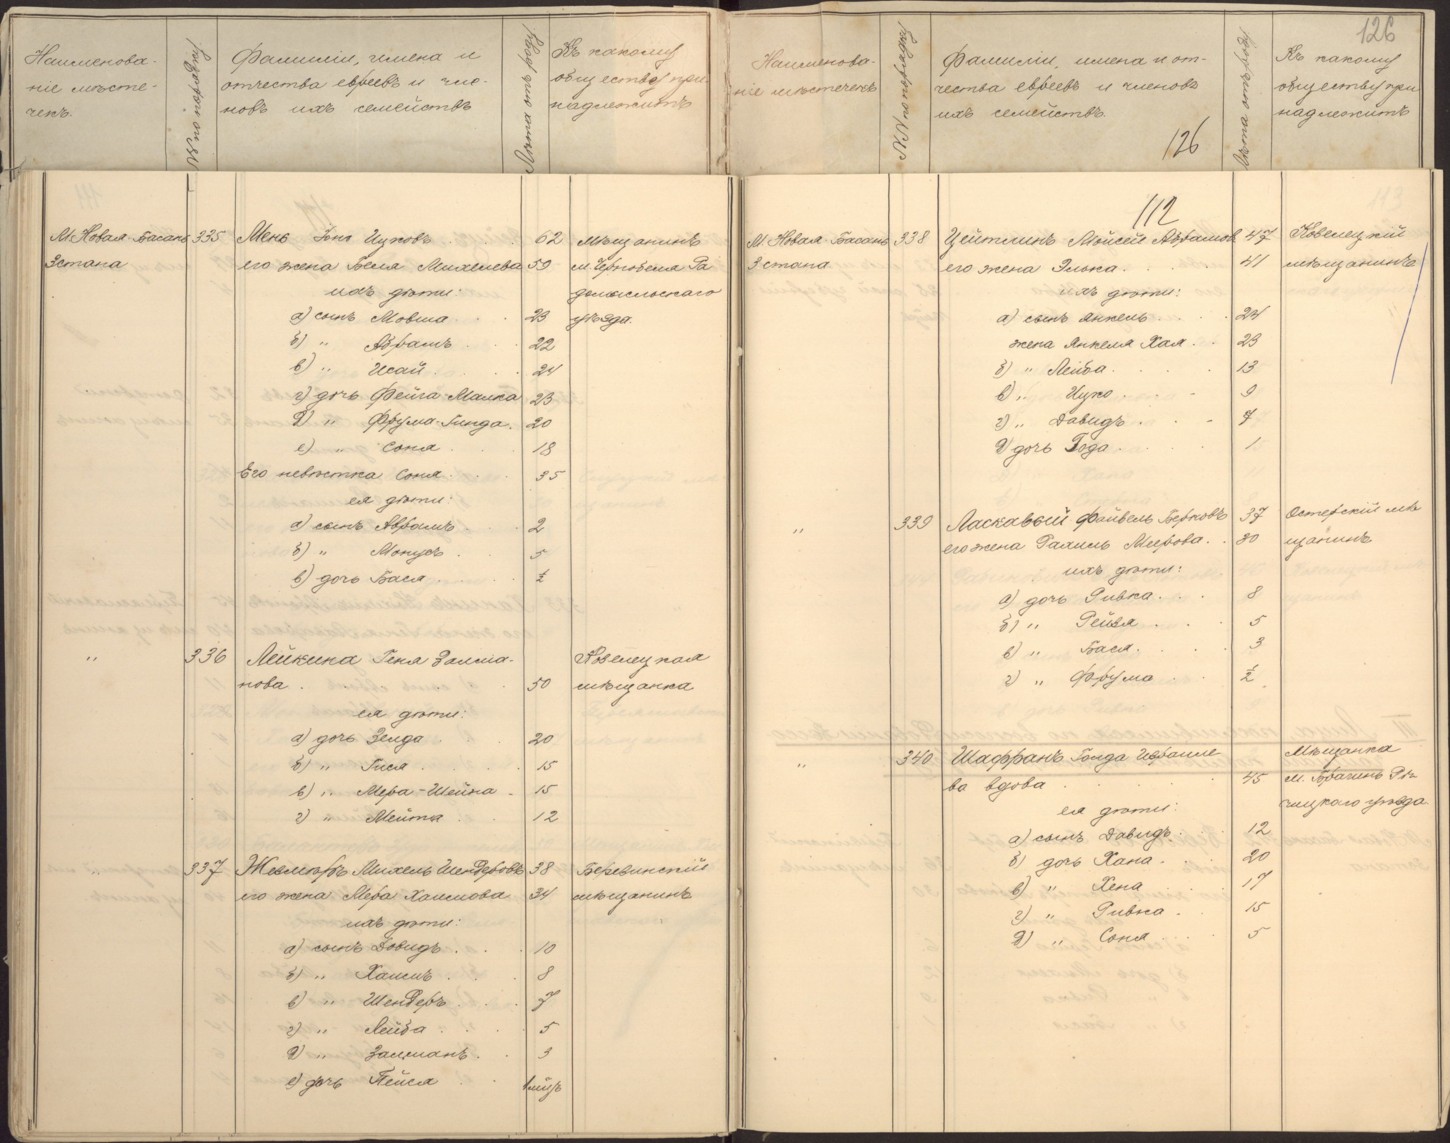 Наименова-
ніе мѣсте-
чекъ.
№№ по порядку
Фамиліи, имена и
отчества евреевъ и чле-
новъ ихъ семействъ
Лѣта отъ роду
Къ какому
обществу при
надлежитъ
М. Новая-Басань
3 стана
335
Мень Іонъ Ицковъ 62 мѣщанинъ
его жена Бейля Михелева 59 м. Чернобыля Ра
ихъ дѣти: домысльскаго
а) сынъ Мовша 23 уѣзда.
б) " Абрамъ 22
в) " Исай 24
г) дочь Фейга-Малка 23
д) " Фрума-Гинда 20
е) " Соня 18
Его невѣстка Соня 35
ея дѣти:
а) сынъ Абрамъ 2
б) " Монусъ 5
в) дочь Бася ½
" 336 Лейкина Геня Залма- Козелецкая
нова 50 мѣщанка
ея дѣти:
а) дочь Зелда 20
б) " Гися 15
в) " Мера-Шейна 15
г) " Мейта 12
337 Михель Шендеровъ 38
его жена Мера Хаимова 34 мѣщанинъ
ихъ дѣти:
а) сынъ Довидъ 10
б) " Хаимъ 8
в) " Шендеръ 7
г) " Лейба 5
д) " Залманъ 3
е) дочь Пейся 1 мѣс.
126
Наименова-
ніе мѣстечекъ
№№ по порядку
Фамиліи, имена и от-
чества евреевъ и членовъ
ихъ семействъ.
126
Лѣта отъ роду
Къ какому
обществу при
надлежитъ
112
М. Новая-Басань 338 Цейтлинъ Мойсей Абрамов. 47 Козелецкій
3 стана его жена Элька 41 мѣщанинъ
ихъ дѣти:
а) сынъ Янкель 24
жена Янкеля Хая 23
б) " Лейба 13
в) " Ицко 9
г) " Давидъ 7
д) дочь Года 1
" 339 Ласкавый Файвель Берковъ 37 Остерскій мѣ
его жена Рахиль Меерова 30 щанинъ
ихъ дѣти:
а) дочь Ривка 8
б) " Рейзя 5
в) " Бася 3
г) " Фрума ½
" 340 Шафранъ Голда Израиле Мѣщанка
ва вдова 45 м. Брагинъ Рѣ-
ея дѣти: чицкаго уѣзда
а) сынъ Давидъ 12
б) дочь Хана 20
в) " Хена 17
г) " Ривка 15
д) " Соня 5